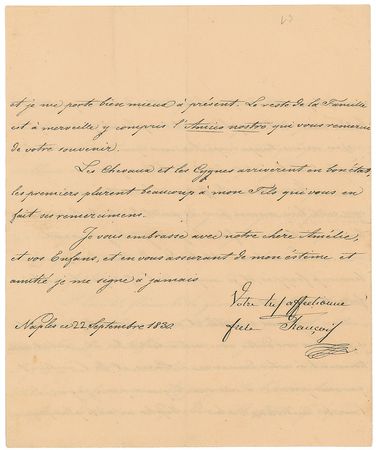 et je me porte bien mieux à présent. Le reste de la Famille
est à merveille y compris l'Amico nostro qui vous remercie
de votre souvenir.
Les Chevaux et les Cygnes arrivèrent en bon état,
les premiers plurent beaucoup à mon Fils qui vous en
fait ses remercimens.
Je vous embrasse avec notre chère Amélie,
et vos Enfans, et en vous assurant de mon éstime et
amitié je me signe à jamais
Votre très affectionné
Naples ce 22 Septembre 1830.
frère François